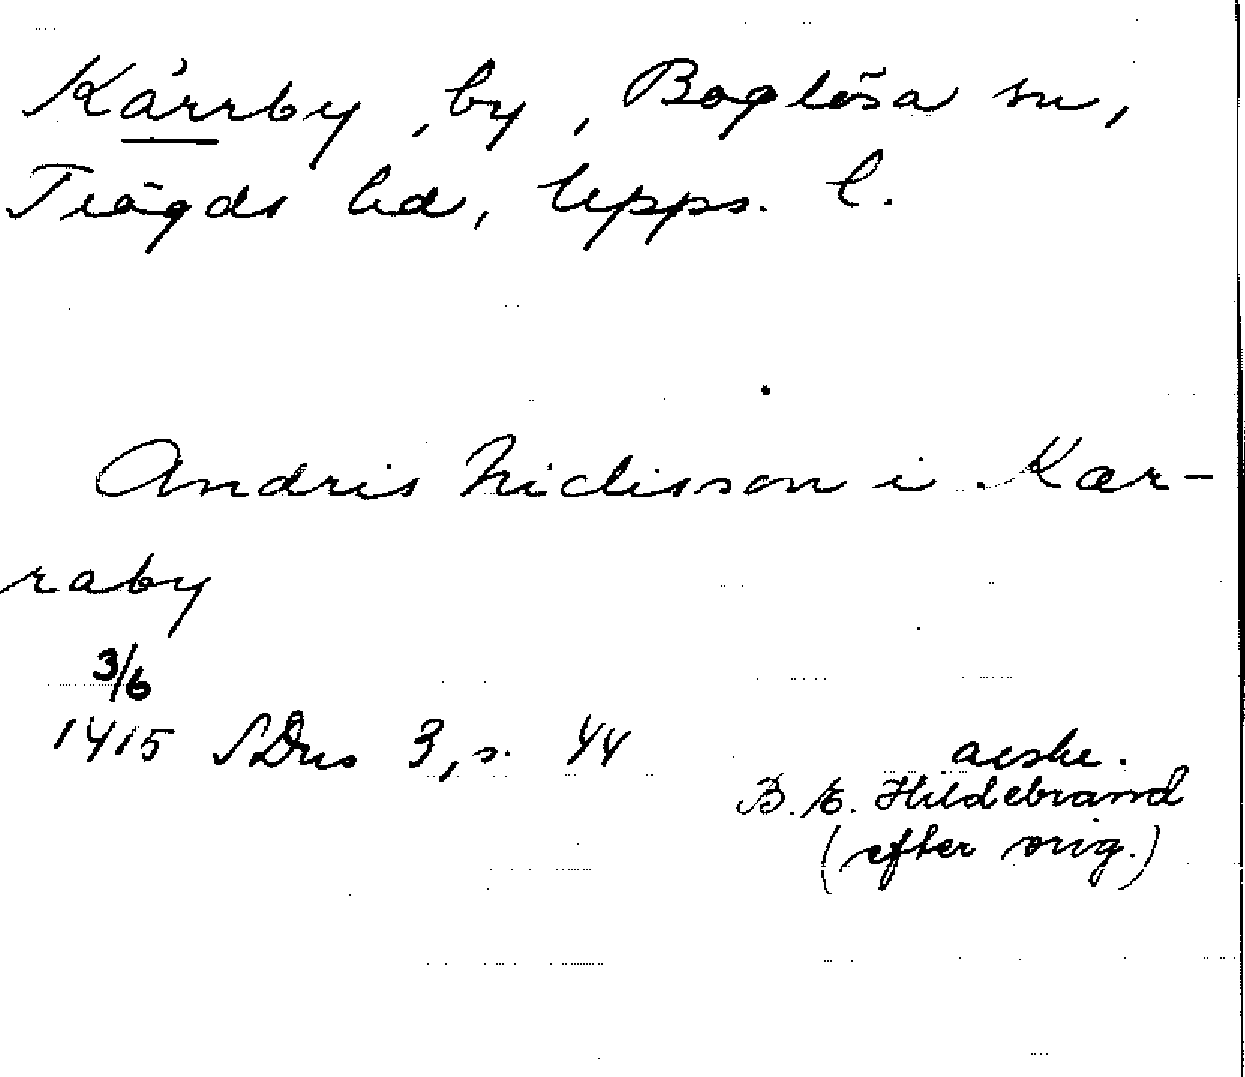 Kärrby, by, Boglösa sn,
Trögds hd, Upps. l.
Andris Niclisson i Kær-
raby
3/6
1415 SDns 3, s. 44
avskr.
B. E. Hildebrand
(efter orig.)